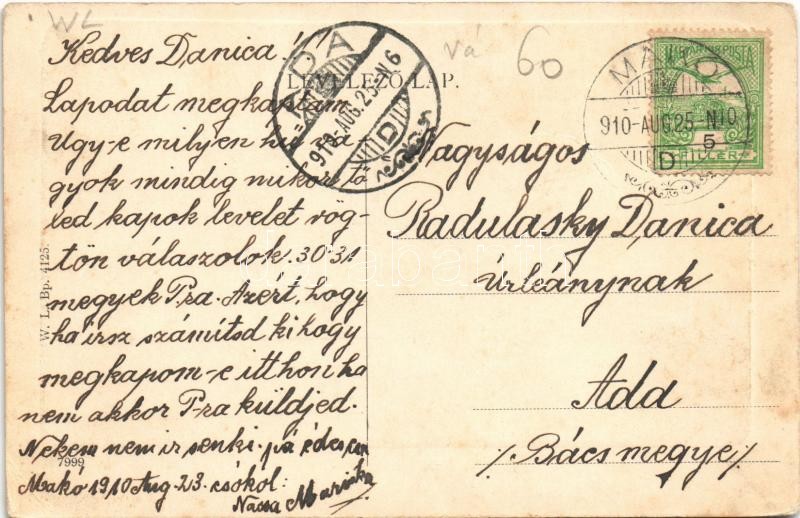 WL
vá
60
LEVELEZŐ LAP.
Kedves Danica!
Lapodat megkaptam.
Ugy-e milyen
gyok mindig mikor tő
led kapok levelet rög-
tön válaszolok. 30-31
megyek P-ra. Azért, hogy
ha irsz számítsd ki hogy
megkapom-e itthon ha
nem akkor P-ra küldjed.
Nekem nem ir senki. pá édes
Makó 1910 Aug 23. csókol:
Nassa Mariska
W. L. Bp. 4125.
7999
ADA
910-AUG.25-N6
D
MAGYAR KIR. POSTA
5
FILLÉR
MAKÓ
910-AUG25-N10
D
Nagyságos
Radulasky Danica
Úrleánynak
Ada
/Bács megye/